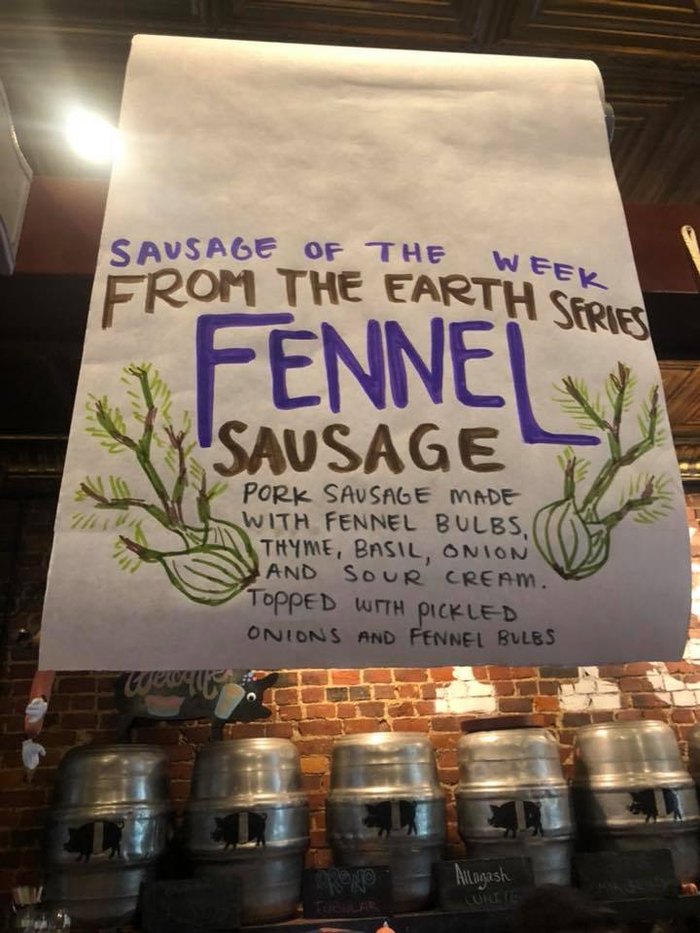 SAUSAGE OF THE WEEK
FROM THE EARTH SERIES
FENNEL
SAUSAGE
PORK SAUSAGE MADE
WITH FENNEL BULBS,
THYME, BASIL, ONION
AND SOUR CREAM.
TOPPED WITH PICKLED
ONIONS AND FENNEL BULBS
Welcome
ORONO
TUBULAR
Allagash
WHITE